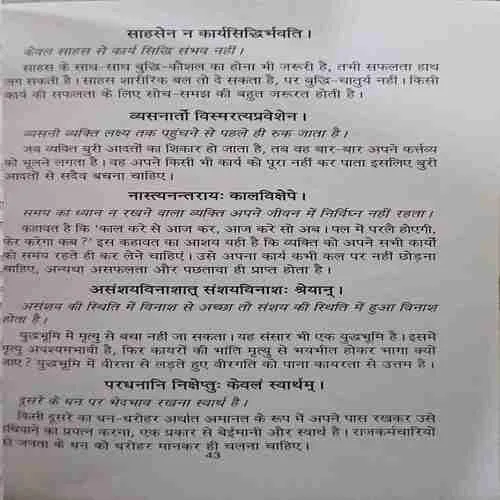 साहसेन न कार्यसिद्धिर्भवति ।
केवल साहस से कार्य सिद्धि संभव नहीं ।
साहस के साथ-साथ बुद्धि-कौशल का होना भी जरूरी है, तभी सफलता हाथ
लग सकती है । साहस शारीरिक बल तो दे सकता है, पर बुद्धि-चातुर्य नहीं । किसी
कार्य की सफलता के लिए सोच-समझ की बहुत जरूरत होती है ।
व्यसनार्तो विस्मरत्यप्रवेशेन ।
व्यसनी व्यक्ति लक्ष्य तक पहुंचने से पहले ही रुक जाता है ।
जब व्यक्ति बुरी आदतों का शिकार हो जाता है, तब वह बार-बार अपने कर्त्तव्य
को भूलने लगता है । वह अपने किसी भी कार्य को पूरा नहीं कर पाता इसलिए बुरी
आदतों से सदैव बचना चाहिए ।
नास्त्यनन्तरायः कालविक्षेपे ।
समय का ध्यान न रखने वाला व्यक्ति अपने जीवन में निर्विघ्न नहीं रहता ।
कहावत है कि 'काल करे से आज कर, आज करे सो अब । पल में परलै होएगी,
फेर करेगा कब ?' इस कहावत का आशय यही है कि व्यक्ति को अपने सभी कार्यों
को समय रहते ही कर लेने चाहिएं । उसे अपना कार्य कभी कल पर नहीं छोड़ना
चाहिए, अन्यथा असफलता और पछतावा ही प्राप्त होता है ।
असंशयविनाशात् संशयविनाशः श्रेयान् ।
असंशय की स्थिति में विनाश से अच्छा तो संशय की स्थिति में हुआ विनाश
होता है ।
युद्धभूमि में मृत्यु से बचा नहीं जा सकता । यह संसार भी एक युद्धभूमि है । इसमें
मृत्यु अवश्यमभावी है, फिर कायरों की भांति मृत्यु से भयभीत होकर भागा क्यों
जाए ? युद्धभूमि में वीरता से लड़ते हुए वीरगति को पाना कायरता से उत्तम है ।
परधनानि निक्षेप्तुः केवलं स्वार्थम् ।
दूसरे के धन पर भेदभाव रखना स्वार्थ है ।
किसी दूसरे का धन-धरोहर अर्थात अमानत के रूप में अपने पास रखकर उसे
हथियाने का प्रयत्न करना, एक प्रकार से बेईमानी और स्वार्थ है । राजकर्मचारियों
को जनता के धन को धरोहर मानकर ही चलना चाहिए ।
43